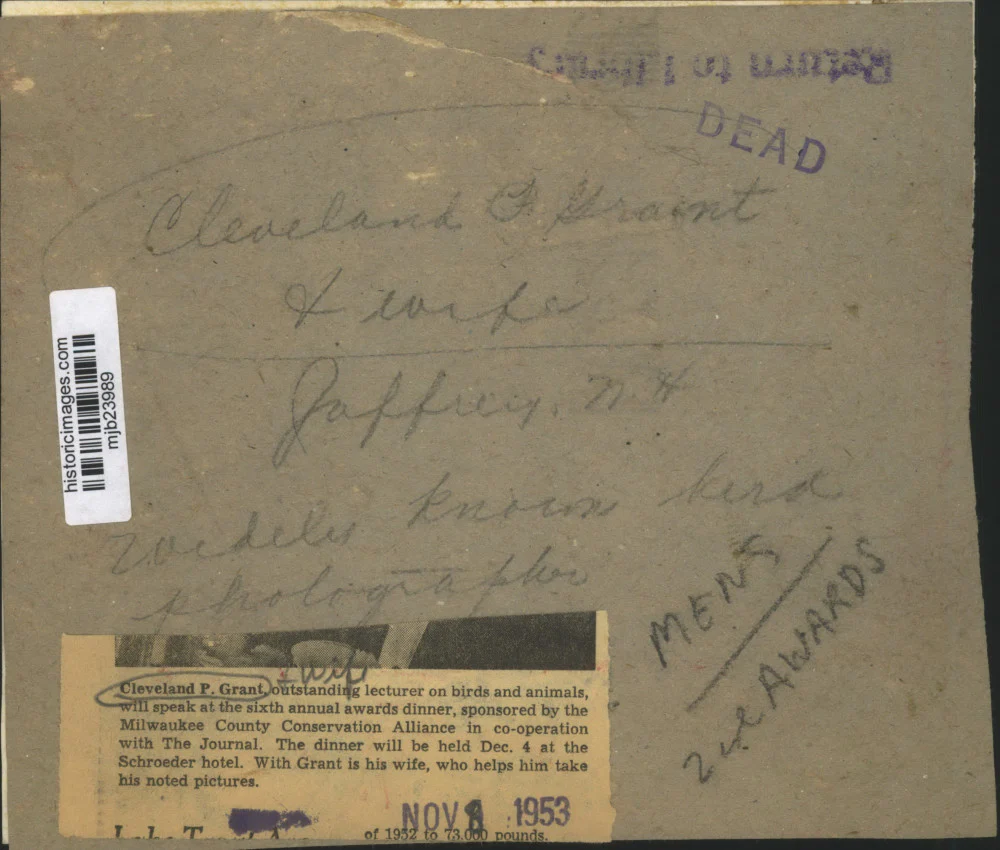 Return to Library
DEAD
Cleveland P Graint
& wife
Jaffrey, N.H
widely known bird
photographer
historicimages.com
mjb23989
MENS
AWARDS
& wife
Cleveland P. Grant, outstanding lecturer on birds and animals,
will speak at the sixth annual awards dinner, sponsored by the
Milwaukee County Conservation Alliance in co-operation
with The Journal. The dinner will be held Dec. 4 at the
Schroeder hotel. With Grant is his wife, who helps him take
his noted pictures.
NOV 8 1953
of 1932 to 73,000 pounds.